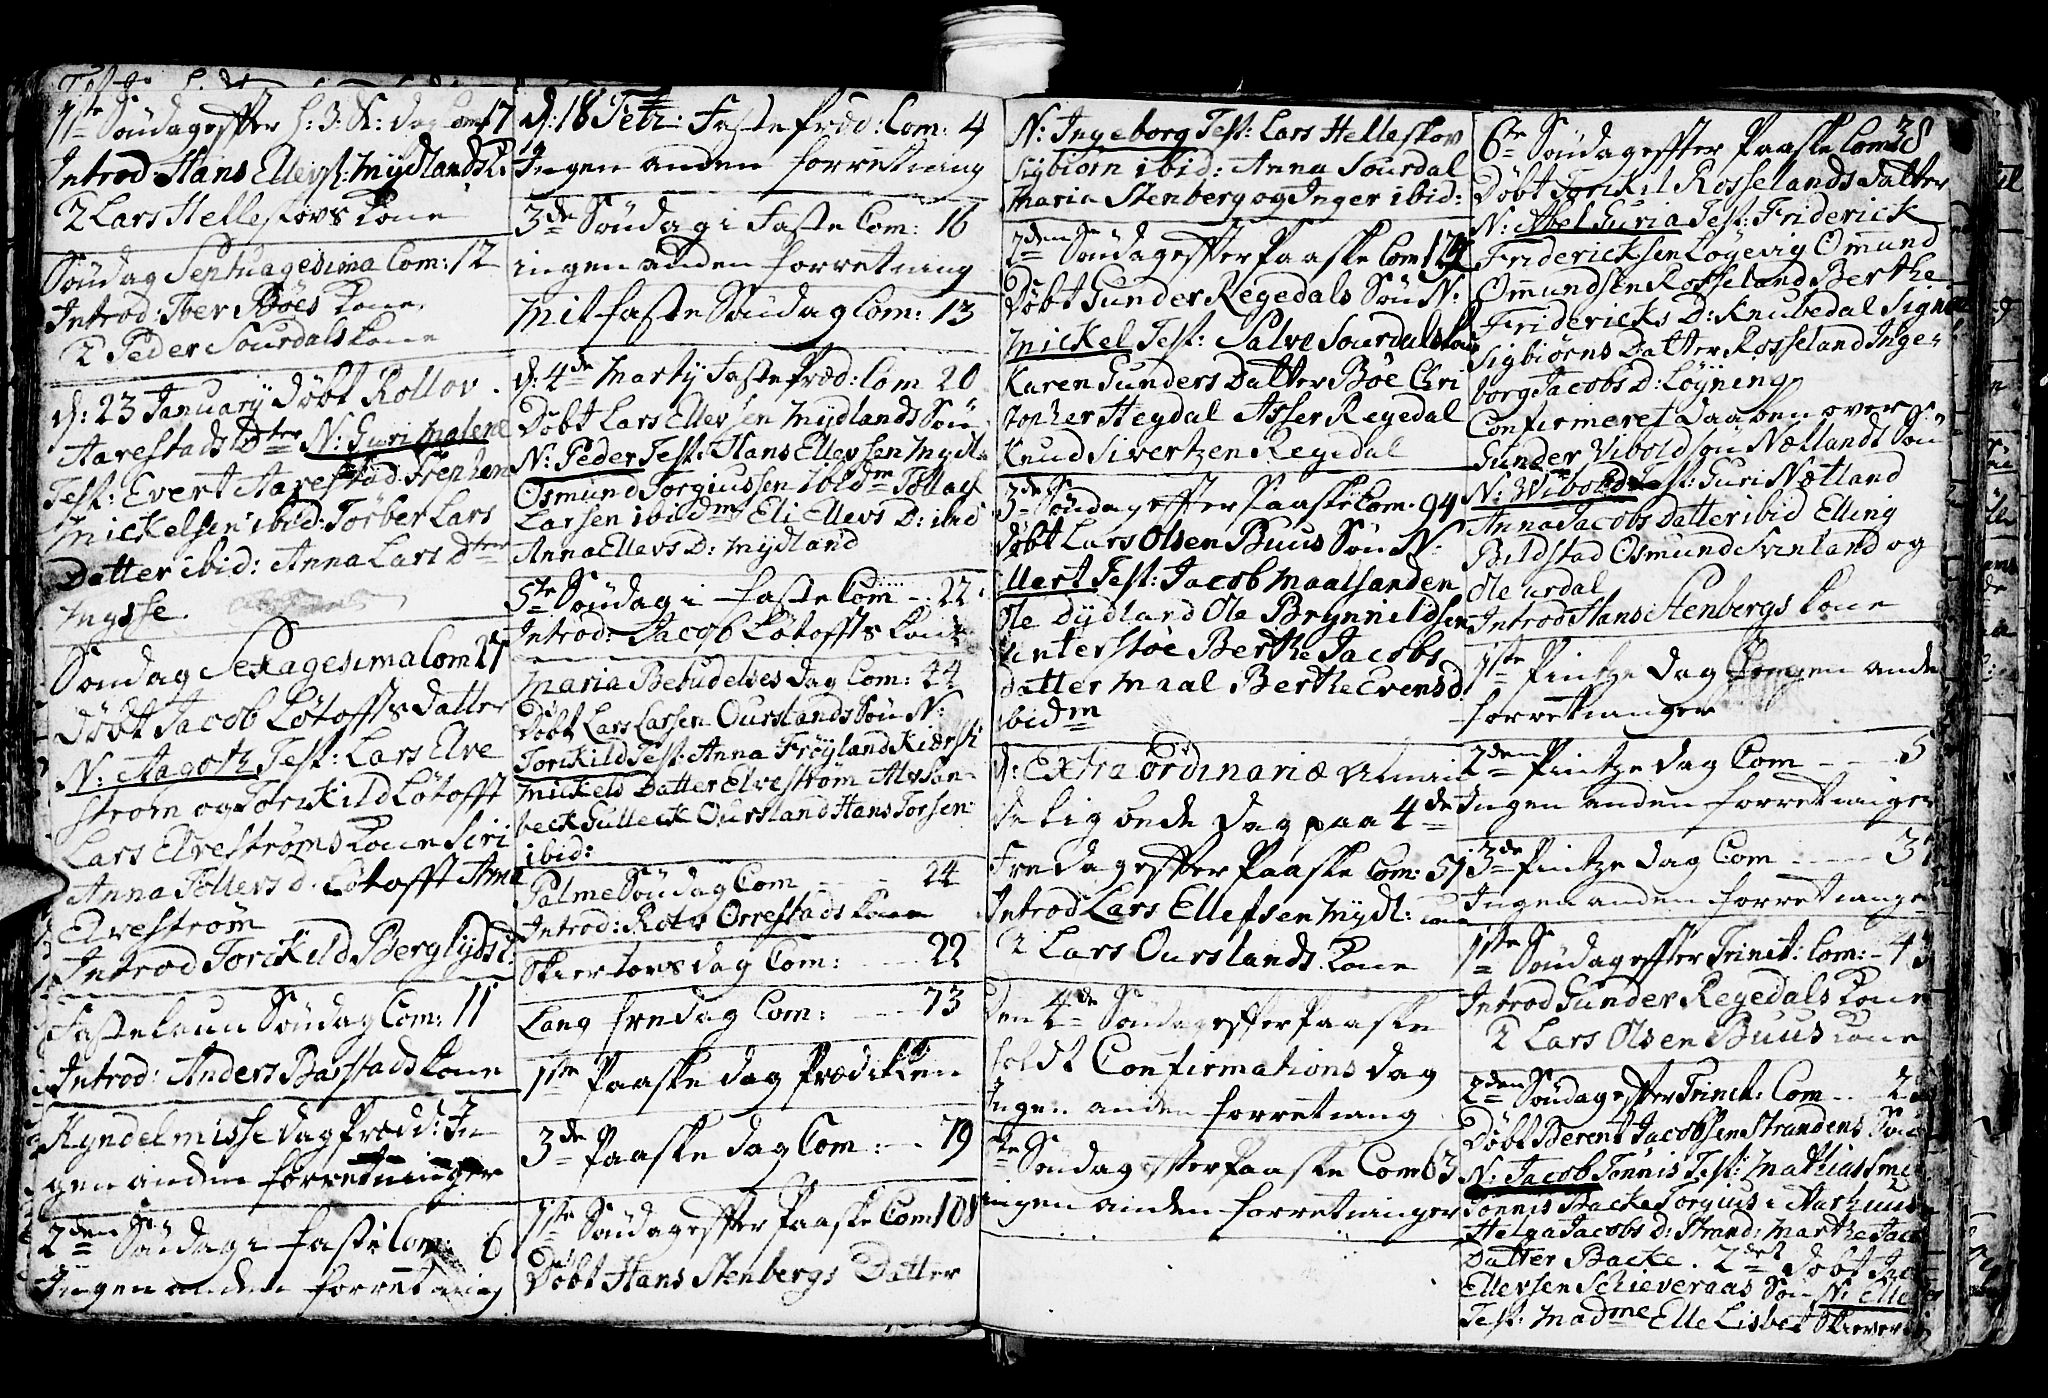 1ste Søndag effter H: 3: K: dag Com 17
Introd Hans Ellevs: Mydlands k:
2 Lars Helleskovs Kone
Søndag Septuagesima Com: 12
Introd: Iver Bøes Kone
2 Peder Sourdals Kone
d: 23 January Døbt Rollov
Aarestads Dtter N: Guri Malene
Test: Evert Aarestad Trephen
Mickelsen ibid: Torber Lars
Datter ibid: Anna Lars Dtter
Mysse.
Søndag Sexagesima Com 21
Døbt Jacob Løtoffts Datter
N: Aagoth Test: Lars Elve
strøm og Torckild Løtofft
Lars Elvestrøms Kone Siri
Anna Tollevs d. Løtofft Anna
Elvestrøm
Introd Torckild Berglyds k:
Fastelaun Søndag Com: 11
Introd: Anders Barstads Kone
Kyndelmisse dag Præd: In
gen anden forretninger
2den Søndag i faste Com: 6
Ingen anden forretning
d: 18 Febr: Faste præd: Com: 4
Ingen anden forretning
3de Søndag i Faste Com: 16
ingen anden forretning
Mitfaste Søndag Com: 13
d: 4de Marty Faste Præd: Com 20
Døbt Lars Ellevsen Mydlands Søn
N: Peder Test: Hans Ellevsen Mydl:
Osmund Torgiussen ibidm Tollac
Larsen ibidm Eli Ellevs D: ibid
Anna Ellevs D: Mydland
5te Søndag i faste Com - 22
Introd: Jacob Løtoffts Kone
Maria Bebudelses dag Com: 24
Døbt Lars Larsen Ourstands Søn N:
Torckild Test: Anna Frøyland Kiersti
Mickels Datter Elvestrøm Alv San-
beck Gulleck Oursland Hans Torsen
ibid:
Palme Søndag Com 24
Introd: Rolv Orrestads Kone
Skiertorsdag Com: 22
Lang fredag Com: 73
1ste Paaske dag Prædicken
3de Paaske dag Com: 79
1ste Søndag effter Paaske Com 108
Døbt Hans Stenbergs Datter
N: Ingeborg Test: Lars Helleskov
Sigbiørn ibid: Anna Sourdal
Maria Stenberg og Inger ibid:
2den Søndag effter Paaske Com
Døbt Gunder Regedals Søn N:
Mickel Test: Salve Sourdals Kone
Karen Gunders Datter Bøe Chri
stopher Hegdal Asser Regedal
Knud Sivertzen Regedal
3de Søndag effter Paaske Com. 94
Døbt Lars Olsen Buus Søn N:
Ellert Test: Jacob Maalsanden
Ole Dydland Ole Brynnildsen
Vinterstøe Berthe Jacobs
datter Maal Berthe Evens d
ibidm
d: Extraordinariæ Almin
delig bede dag paa 4de
Fredag effter Paaske Com: 51
Introd Lars Ellefsen Mydl: Kone
2 Lars Ourslands Kone
Den 4de Søndag effter Paaske
holdt Confirmations dag
Ingen anden forretning
5te Søndag effter Paaske Com 63
ingen anden forretninger
38
6te Søndag effter Paaske Com
Døbt Torckil Rosselands Datter
N: Abel Guria Test: Friderick
Fridericksen Løgevig Omund
Omundsen Rosseland Berthe
Fridericks D: Knubedal Signe
Sigbiørns Datter Rosseland Inge-
borg Jacobs D: Løyning
Confirmeret Daaben over
Gunder Viboldsøn Nætlands Søn
N: Wibold Test: Guri Nætland
Anna Jacobs Datter ibid Elling
Bildstad Osmund Svinland og
Ole urdal
Introd Hans Stenbergs Kone
1ste Pintze dag Ingen anden
forretninger
2den Pintze dag Com - - 5
Ingen anden forretninger
3de Pintze dag Com - - 3
Ingen anden forretninger
1ste Søndag effter Trinit: Com: - 4
Introd Gunder Regedals Kone
2 Lars Olsen Buus Kone
2den Søndag effter Trinit: Com - 2
Døbt Berent Jacobsen Strandens Søn
N: Jacob Tønnis Test: Mathias
Tønnis Backe Torgius i Aarhuus
Helga Jacobs d: Strand: Marthe Jac
Datter Backe. 2det Døbt
Ellevsen Schieveraas Søn N: Elle
Test: Madme Elle Lisbet